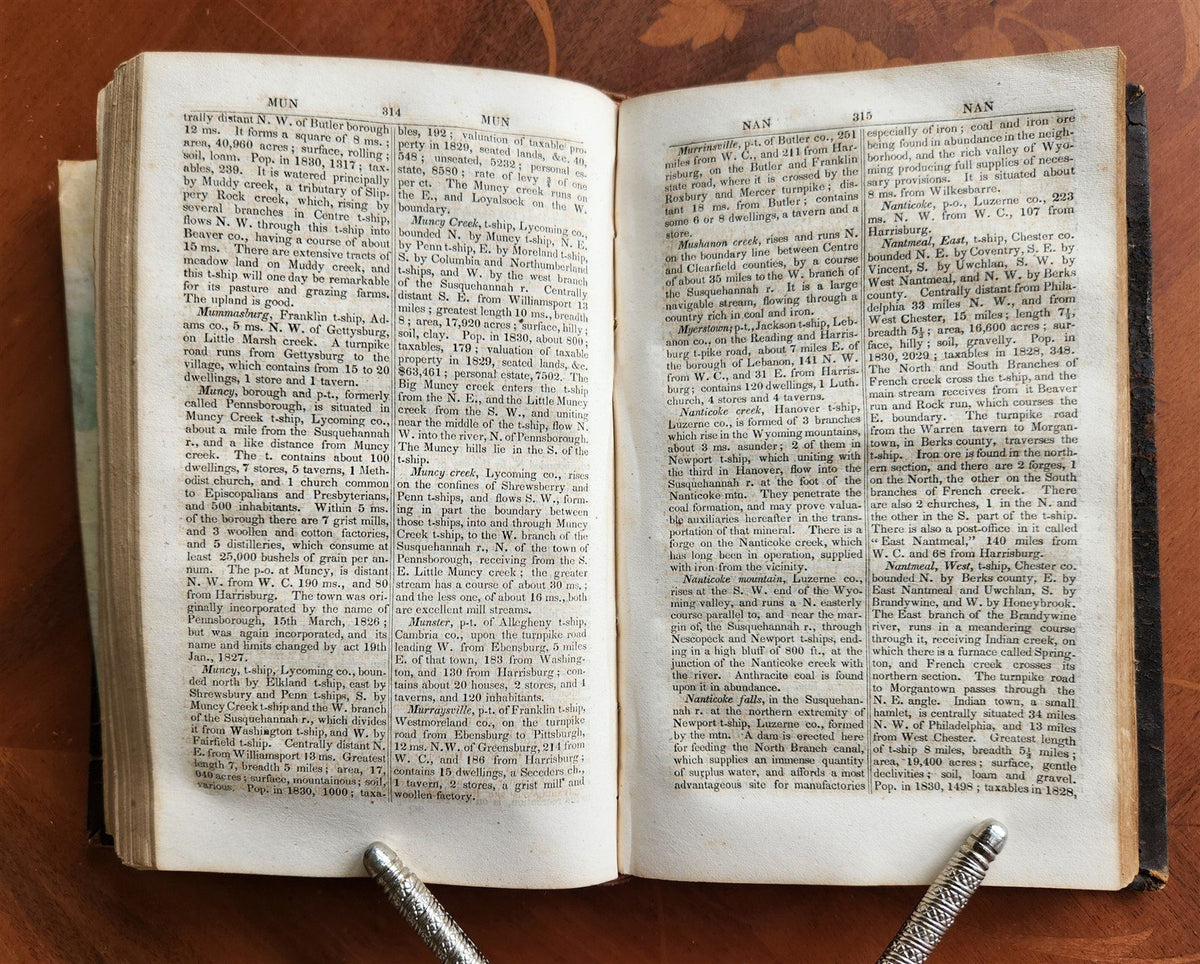 MUN 314 MUN
trally distant N. W. of Butler borough
12 ms. It forms a square of 8 ms. ;
area, 40,960 acres ; surface, rolling ;
soil, loam. Pop. in 1830, 1317 ; tax-
ables, 239. It is watered principally
by Muddy creek, a tributary of Slip-
pery Rock creek, which, rising by
several branches in Centre t-ship,
flows N. W. through this t-ship into
Beaver co., having a course of about
15 ms. There are extensive tracts of
meadow land on Muddy creek, and
this t-ship will one day be remarkable
for its pasture and grazing farms.
The upland is good.
Mummasburg, Franklin t-ship, Ad-
ams co., 5 ms. N. W. of Gettysburg,
on Little Marsh creek. A turnpike
road runs from Gettysburg to the
village, which contains from 15 to 20
dwellings, 1 store and 1 tavern.
Muncy, borough and p-t., formerly
called Pennsborough, is situated in
Muncy Creek t-ship, Lycoming co.,
about a mile from the Susquehannah
r., and a like distance from Muncy
creek. The t. contains about 100
dwellings, 7 stores, 5 taverns, 1 Meth-
odist church, and 1 church common
to Episcopalians and Presbyterians,
and 500 inhabitants. Within 5 ms.
of the borough there are 7 grist mills,
and 3 woollen and cotton factories,
and 5 distilleries, which consume at
least 25,000 bushels of grain per an-
num. The p-o. at Muncy, is distant
N. W. from W. C. 190 ms., and 80
from Harrisburg. The town was ori-
ginally incorporated by the name of
Pennsborough, 15th March, 1826 ;
but was again incorporated, and its
name and limits changed by act 19th
Jan., 1827.
Muncy, t-ship, Lycoming co., boun-
ded north by Elkland t-ship, east by
Shrewsbury and Penn t-ships, S. by
Muncy Creek t-ship and the W. branch
of the Susquehannah r., which divides
it from Washington t-ship, and W. by
Fairfield t-ship. Centrally distant N.
E. from Williamsport 13 ms. Greatest
length 7, breadth 5 miles ; area, 17,
040 acres ; surface, mountainous ; soil,
various. Pop. in 1830, 1000 ; taxa-
bles, 192 ; valuation of taxable pro-
perty in 1829, seated lands, &c. 40,
548 ; unseated, 5232 ; personal es-
state, 8580 ; rate of levy ¾ of one
per ct. The Muncy creek runs on
the E., and Loyalsock on the W.
boundary.
Muncy Creek, t-ship, Lycoming co.,
bounded N. by Muncy t-ship, N. E.
by Penn t-ship, E. by Moreland t-ship,
S. by Columbia and Northumberland
t-ships, and W. by the west branch
of the Susquehannah r. Centrally
distant S. E. from Williamsport 13
miles ; greatest length 10 ms., breadth
8 ; area, 17,920 acres ; surface, hilly ;
soil, clay. Pop. in 1830, about 800 ;
taxables, 179 ; valuation of taxable
property in 1829, seated lands, &c.
$63,461 ; personal estate, 7502. The
Big Muncy creek enters the t-ship
from the N. E., and the Little Muncy
creek from the S. W., and uniting
near the middle of the t-ship, flow N.
W. into the river, N. of Pennsborough.
The Muncy hills lie in the S. of the
t-ship.
Muncy creek, Lycoming co., rises
on the confines of Shrewsberry and
Penn t-ships, and flows S. W., form-
ing in part the boundary between
those t-ships, into and through Muncy
Creek t-ship, to the W. branch of the
Susquehannah r., N. of the town of
Pennsborough, receiving from the S.
E. Little Muncy creek ; the greater
stream has a course of about 30 ms. ;
and the less one, of about 16 ms., both
are excellent mill streams.
Munster, p-t. of Allegheny t-ship,
Cambria co., upon the turnpike road
leading W. from Ebensburg, 5 miles
E. of that town, 183 from Washing-
ton, and 130 from Harrisburg ; con-
tains about 20 houses, 2 stores, and 4
taverns, and 120 inhabitants.
Murraysville, p-t. of Franklin t-ship,
Westmoreland co., on the turnpike
road from Ebensburg to Pittsburg,
12 ms. N.W. of Greensburg, 214 from
W. C., and 186 from Harrisburg ;
contains 15 dwellings, a Seceders ch.,
1 tavern, 2 stores, a grist mill and
woollen factory.
NAN 315 NAN
Murrinsville, p-t. of Butler co., 251
miles from W. C., and 211 from Har-
risburg, on the Butler and Franklin
state road, where it is crossed by the
Roxbury and Mercer turnpike ; dis-
tant 18 ms. from Butler ; contains
some 6 or 8 dwellings, a tavern and a
store.
Mushanon creek, rises and runs N.
on the boundary line between Centre
and Clearfield counties, by a course
of about 35 miles to the W. branch of
the Susquehannah r. It is a large
navigable stream, flowing through a
country rich in coal and iron.
Myerstown; p-t., Jackson t-ship, Leb-
anon co., on the Reading and Harris-
burg t-pike road, about 7 miles E. of
the borough of Lebanon, 141 N. W.
from W. C., and 31 E. from Harris-
burg ; contains 120 dwellings, 1 Luth.
church, 4 stores and 4 taverns.
Nanticoke creek, Hanover t-ship,
Luzerne co., is formed of 3 branches
which rise in the Wyoming mountains,
about 3 ms. asunder ; 2 of them in
Newport t-ship, which uniting with
the third in Hanover, flow into the
Susquehannah r. at the foot of the
Nanticoke mtn. They penetrate the
coal formation, and may prove valua-
ble auxiliaries hereafter in the trans-
portation of that mineral. There is a
forge on the Nanticoke creek, which
has long been in operation, supplied
with iron from the vicinity.
Nanticoke mountain, Luzerne co.,
rises at the S. W. end of the Wyo-
ming valley, and runs a N. easterly
course parallel to, and near the mar-
gin of, the Susquehannah r., through
Nescopeck and Newport t-ships, end-
ing in a high bluff of 800 ft., at the
junction of the Nanticoke creek with
the river. Anthracite coal is found
upon it in abundance.
Nanticoke falls, in the Susquehan-
nah r. at the northern extremity of
Newport t-ship, Luzerne co., formed
by the mtn. A dam is erected here
for feeding the North Branch canal,
which supplies an immense quantity
of surplus water, and affords a most
advantageous site for manufactories
especially of iron ; coal and iron ore
being found in abundance in the neigh-
borhood, and the rich valley of Wyo-
ming producing full supplies of neces-
sary provisions. It is situated about
8 ms. from Wilkesbarre.
Nanticoke, p-o., Luzerne co., 223
ms. N. W. from W. C., 107 from
Harrisburg.
Nantmeal, East, t-ship, Chester co.
bounded N. E. by Coventry, S. E. by
Vincent, S. by Uwchlan, S. W. by
West Nantmeal, and N. W. by Berks
county. Centrally distant from Phila-
delphia 33 miles N. W., and from
West Chester, 15 miles ; length 7½,
breadth 5½ ; area, 16,600 acres ; sur-
face, hilly ; soil, gravelly. Pop. in
1830, 2029 ; taxables in 1828, 348.
The North and South Branches of
French creek cross the t-ship, and the
main stream receives from it Beaver
run and Rock run, which courses the
E. boundary. The turnpike road
from the Warren tavern to Morgan-
town, in Berks county, traverses the
t-ship. Iron ore is found in the north-
ern section, and there are 2 forges, 1
on the North, the other on the South
branches of French creek. There
are also 2 churches, 1 in the N. and
the other in the S. part of the t-ship.
There is also a post-office in it called
"East Nantmeal," 140 miles from
W. C. and 68 from Harrisburg.
Nantmeal, West, t-ship, Chester co.
bounded N. by Berks county, E. by
East Nantmeal and Uwchlan, S. by
Brandywine, and W. by Honeybrook.
The East branch of the Brandywine
river, runs in a meandering course
through it, receiving Indian creek, on
which there is a furnace called Spring-
ton, and French creek crosses its
northern section. The turnpike road
to Morgantown passes through the
N. E. angle. Indian town, a small
hamlet, is centrally situated 34 miles
N. W. of Philadelphia, and 13 miles
from West Chester. Greatest length
of t-ship 8 miles, breadth 5½ miles ;
area, 19,400 acres ; surface, gentle
declivities ; soil, loam and gravel.
Pop. in 1830, 1498 ; taxables in 1828,